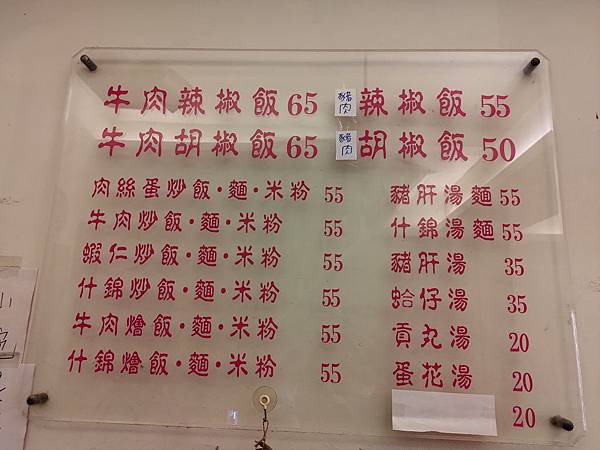 牛肉辣椒飯65 豬肉辣椒飯55
牛肉胡椒飯65 豬肉胡椒飯50
肉絲蛋炒飯·麵·米粉 55
牛肉炒飯·麵·米粉 55
蝦仁炒飯·麵·米粉 55
什錦炒飯·麵·米粉 55
牛肉燴飯·麵·米粉 55
什錦燴飯·麵·米粉 55
豬肝湯麵55
什錦湯麵55
豬肝湯 35
蛤仔湯 35
貢丸湯 20
蛋花湯 20
20
小